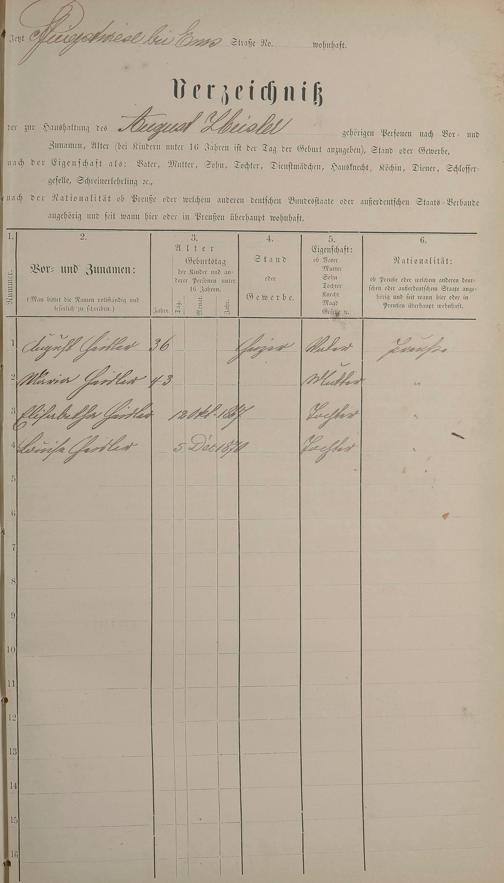 Jetzt Pfingstwiese bei Ems Straße No. wohnhaft.
Verzeichniß
der zur Haushaltung des August Heisler gehörigen Personen nach Vor- und
Zunamen, Alter (bei Kindern unter 16 Jahren ist der Tag der Geburt anzugeben), Stand oder Gewerbe,
nach der Eigenschaft als: Vater, Mutter, Sohn, Tochter, Dienstmädchen, Hausknecht, Köchin, Diener, Schlosser-
geselle, Schreinerlehrling ꝛc.,
nach der Nationalität ob Preuße oder welchem anderen deutschen Bundesstaate oder außerdeutschen Staats-Verbande
angehörig und seit wann hier oder in Preußen überhaupt wohnhaft.
1. 2. 3. 4. 5. 6.
Nummer.
Vor- und Zunamen:
(Man bittet die Namen vollständig und
leserlich zu schreiben.)
Alter
Geburtstag
der Kinder und an-
derer Personen unter
16 Jahren.
Jahre. Tag. Monat. Jahr.
Stand
oder
Gewerbe.
Eigenschaft:
ob Vater
Mutter
Sohn
Tochter
Knecht
Magd
Geselle ꝛc.
Nationalität:
ob Preuße oder welchem anderen deut-
schen oder außerdeutschen Staate ange-
hörig und seit wann hier oder in
Preußen überhaupt wohnhaft.
1 August Heisler 36 Heizer Vater Preuße
2 Maria Heisler 43 Mutter "
3 Elisabetha Heisler 12 Okt. 1867 Tochter "
4 Louise Heisler 5 Dec 1870 Tochter "
5
6
7
8
9
10
11
12
13
14
15
16